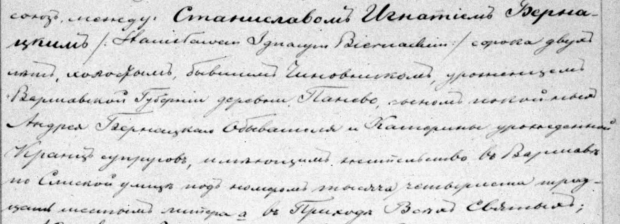 союзъ между: Станиславомъ Игнатіемъ Берна-
цкимъ /: Stanisławem Ignacym Biernackim :/ сорока двухъ
лѣтъ, холостымъ, бывшимъ Чиновникомъ, уроженцемъ
Варшавской Губерніи деревни Паново, сыномъ покойныхъ
Андрея Бернацкаго Обывателя и Катерины урожденной
Кранцъ супруговъ, имѣющимъ жительство въ Варшавѣ
по Слиской улицѣ подъ номеромъ тысяча четыреста
цатымъ литера а въ Приходѣ Всѣхъ Святыхъ;